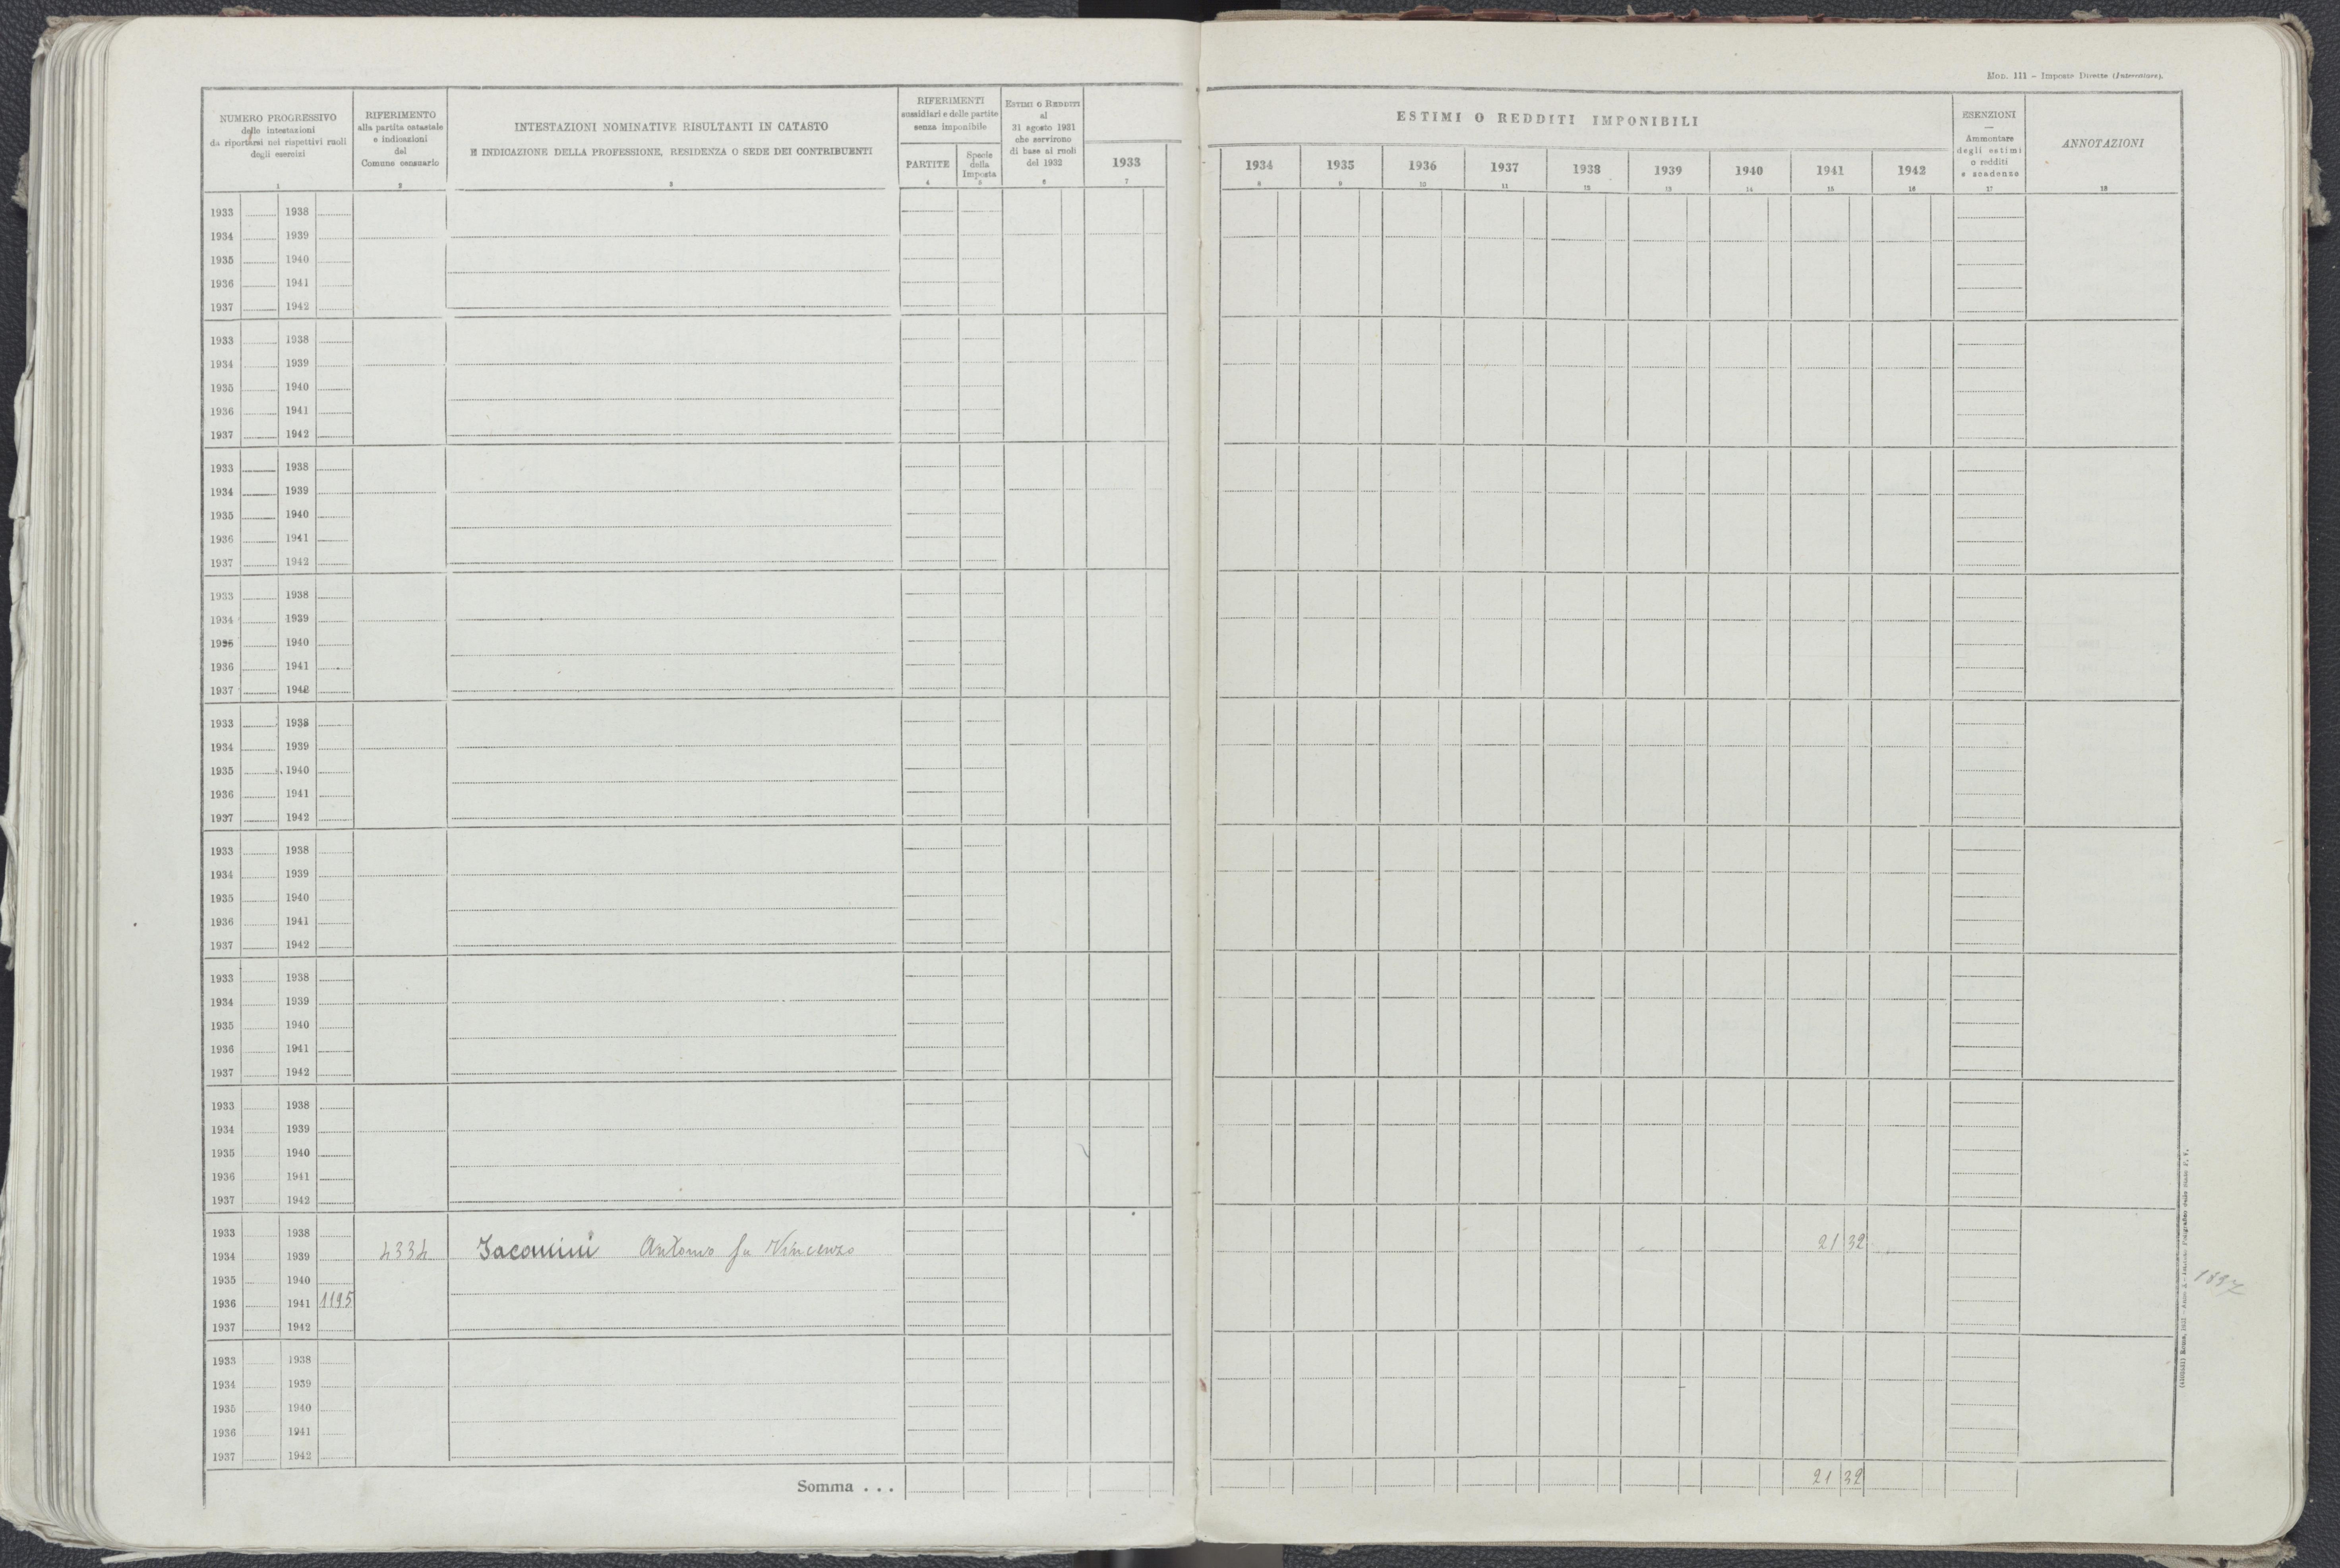 Mod. 111 - Imposte Dirette (Intercalare).
NUMERO PROGRESSIVO
delle intestazioni
da riportarsi nei rispettivi ruoli
degli esercizi
1
RIFERIMENTO
alla partita catastale
e indicazioni
del
Comune censuario
2
INTESTAZIONI NOMINATIVE RISULTANTI IN CATASTO
E INDICAZIONE DELLA PROFESSIONE, RESIDENZA O SEDE DEI CONTRIBUENTI
3
RIFERIMENTI
sussidiari e delle partite
senza imponibile
PARTITE
4
Specie
della
Imposta
5
Estimi o Redditi
al
31 agosto 1931
che servirono
di base ai ruoli
del 1932
6
1933
7
ESTIMI O REDDITI IMPONIBILI
1934 1935 1936 1937 1938 1939 1940 1941 1942
8 9 10 11 12 13 14 15 16
ESENZIONI
Ammontare
degli estimi
o redditi
e scadenze
17
ANNOTAZIONI
18
1933 1938
1934 1939
1935 1940
1936 1941
1937 1942
1933 1938
1934 1939
1935 1940
1936 1941
1937 1942
1933 1938
1934 1939
1935 1940
1936 1941
1937 1942
1933 1938
1934 1939
1935 1940
1936 1941
1937 1942
1933 1938
1934 1939
1935 1940
1936 1941
1937 1942
1933 1938
1934 1939
1935 1940
1936 1941
1937 1942
1933 1938
1934 1939
1935 1940
1936 1941
1937 1942
1933 1938
1934 1939
1935 1940
1936 1941
1937 1942
1933 1938
1934 1939 4334 Iacomini Antonio fu Vincenzo 21 32
1935 1940
1936 1941 1195
1937 1942
1933 1938
1934 1939
1935 1940
1936 1941
1937 1942
Somma . . . 21 32